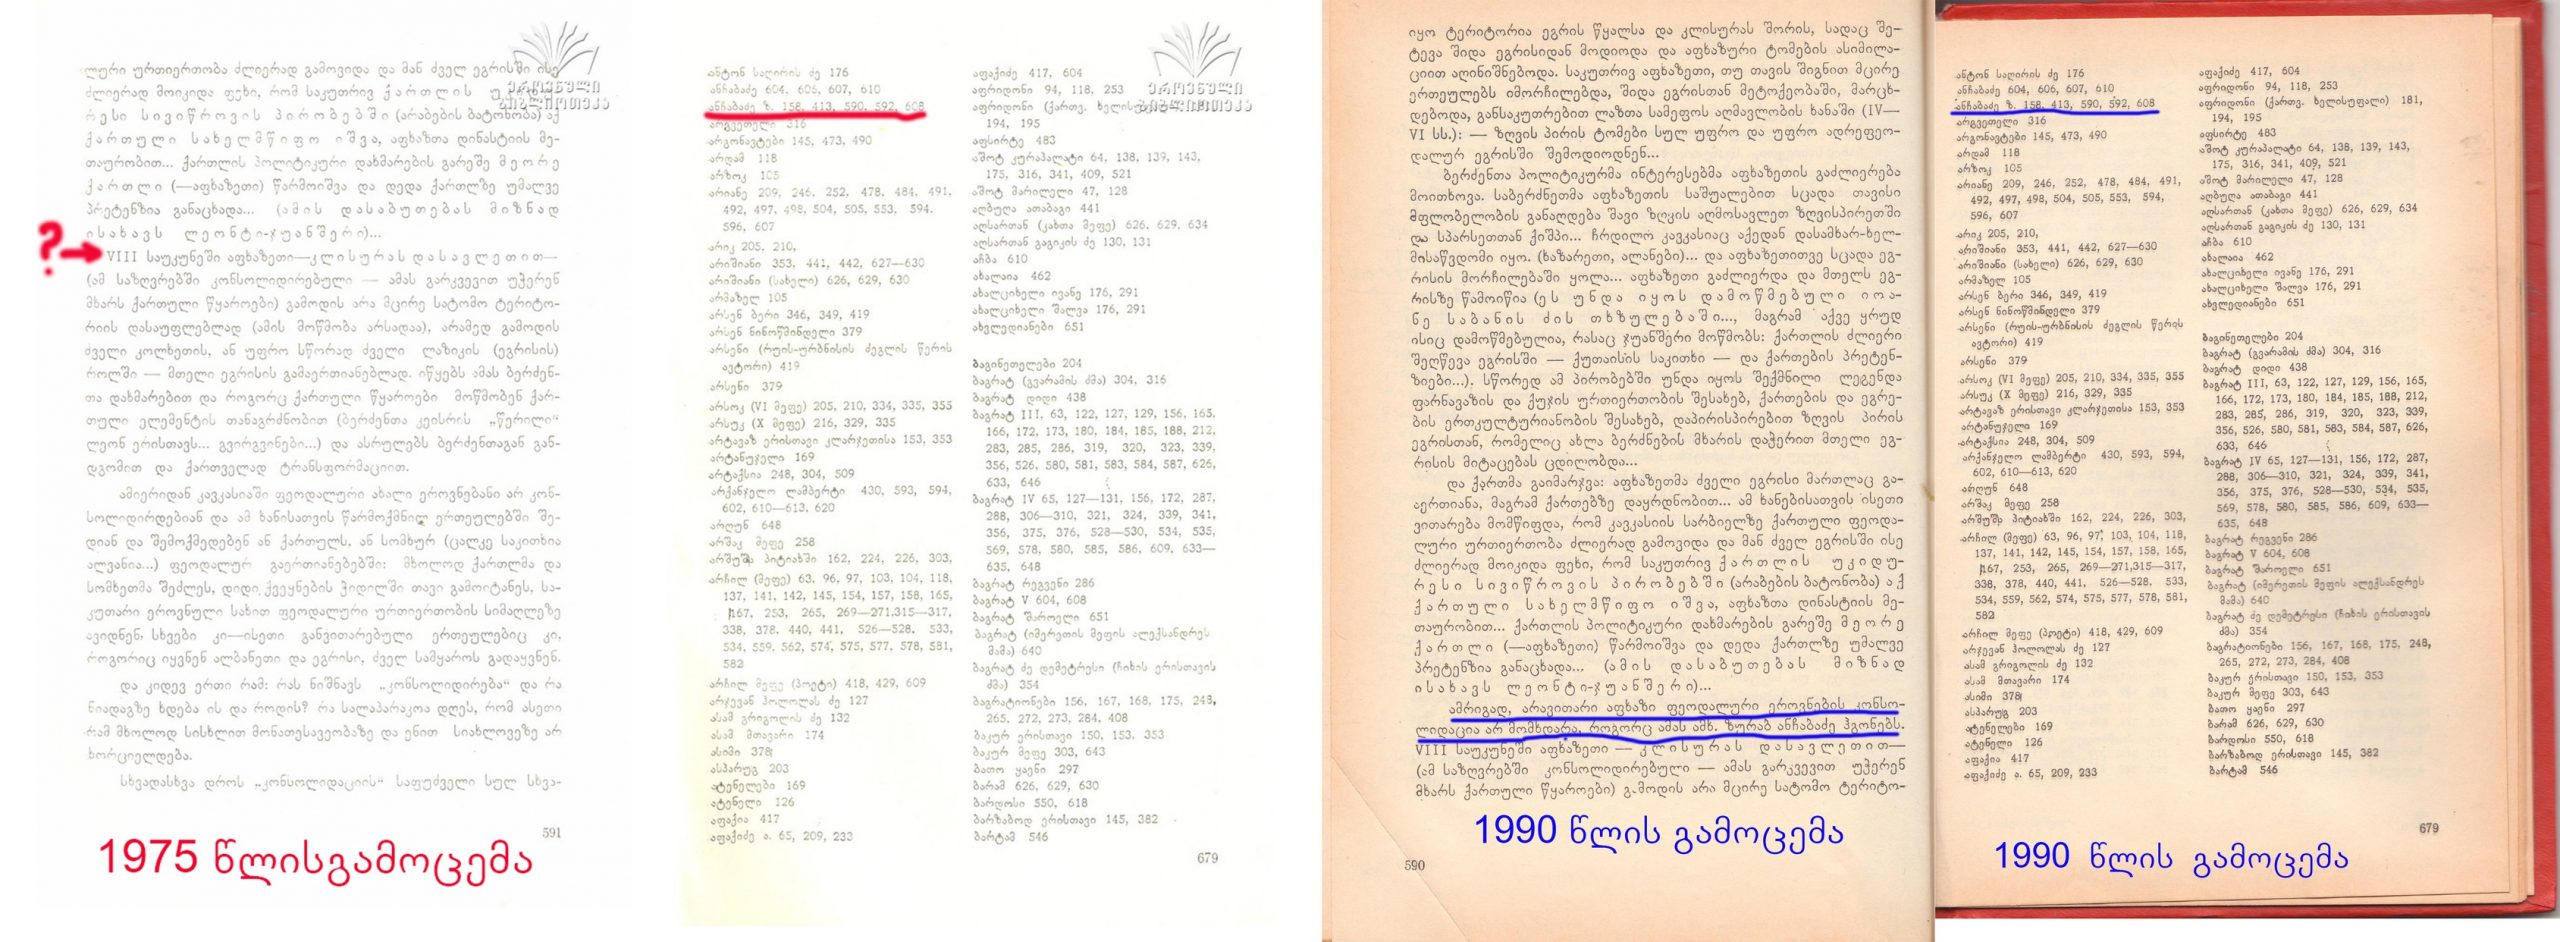 ეროვნული
ბიბლიოთეკა
ლური ურთიერთობა ძლიერად გამოვიდა და მან ძველ ეგრისში ისე
ძლიერად მოიკიდა ფეხი, რომ საკუთრივ ქ ა რ თ ლ ი ს
რ ე ს ი ს ი ვ ი წ რ ო ვ ი ს პ ი რ ო ბ ე ბ შ ი (არაბების ბატონობა) აქ
ქ ა რ თ უ ლ ი ს ა ხ ე ლ მ წ ი ფ ო ი შ ვ ა, აფხაზთა დინასტიის მე-
თაურობით... ქართლის პოლიტიკური დახმარების გარეშე მ ე ო რ ე
ქ ა რ თ ლ ი (—აფხაზეთი) წარმოიშვა და დედა ქართლზე უმალვე
პრეტენზია განაცხადა... (ა მ ი ს დ ა ს ა ბ უ თ ე ბ ა ს მ ი ზ ნ ა დ
ი ს ა ხ ა ვ ს ლ ე ო ნ ტ ი-ჯ უ ა ნ შ ე რ ი)...
?→ VIII საუკუნეში აფხაზეთი—კ ლ ი ს უ რ ა ს დ ა ს ა ვ ლ ე თ ი თ—
(ამ საზღვრებში კონსოლიდირებული — ამას გარკვევით უჭერენ
მხარს ქართული წყაროები) გამოდის არა მცირე სატომო ტერიტო-
რიის დასაუფლებლად (ამის მოწმობა არსადაა), არამედ გამოდის
ძველი კოლხეთის, ან უფრო სწორად ძველი ლაზიკის (ეგრისის)
როლში — მთელი ეგრისის გამაერთიანებლად. იწყებს ამას ბერძენ-
თა დახმარებით და როგორც ქართული წყაროები მოწმობენ ქარ-
თული ელემენტის თანაგრძნობით (ბერძენთა კეისრის „წერილი“
ლეონ ერისთავს... გვირგვინები...) და ასრულებს ბერძენთაგან გან-
დგომით და ქართველად ტრანსფორმაციით.
ამიერიდან კავკასიაში ფეოდალური ახალი ეროვნებანი არ კონ-
სოლიდირდებიან და ამ ხანისათვის წარმოქმნილ ერთეულებში შე-
დიან და შემოქმედებენ ან ქართულს, ან სომხურ (ცალკე საკითხია
ალვანია...) ფეოდალურ გაერთიანებებში: მხოლოდ ქართლმა და
სომხეთმა შეძლეს, დიდი ქვეყნების ჭიდილში თავი გამოიტანეს, სა-
კუთარი ეროვნული სახით ფეოდალური ურთიერთობის სიმაღლეზე
ავიდნენ, სხვები კი—ისეთი განვითარებული ერთეულებიც კი,
როგორიც იყვნენ ალბანეთი და ეგრისი, ძველ სამყაროს გადაყვნენ.
და კიდევ ერთი რამ: რას ნიშნავს „კონსოლიდირება“ და რა
ნიადაგზე ხდება ის და როდის? რა სალაპარაკოა დღეს, რომ ასეთი
რამ მხოლოდ სისხლით მონათესავეობაზე და ენით სიახლოვეზე არ
ხორციელდება.
სხვადასხვა დროს „კონსოლიდაციის“ საფუძველი სულ სხვა-
591
1975 წლისგამოცემა
ეროვნული
ბიბლიოთეკა
ანტონ საღირის ძე 176
ანჩაბაძე 604, 606, 607, 610
ანჩაბაძე ზ. 158, 413, 590, 592, 608
არგვეთელი 316
არგონავტები 145, 473, 490
არდამ 118
არზოკ 105
არიანე 209, 246, 252, 478, 484, 491,
492, 497, 498, 504, 505, 553, 594.
596, 607
არიკ 205. 210,
არიშიანი 353, 441, 442, 627—630
არიშიანი (სახელი) 626, 629, 630
არმაზელ 105
არსენ ბერი 346, 349, 419
არსენ ნინოწმინდელი 379
არსენი (რუის-ურბნისის ძეგლის წერის
ავტორი) 419
არსენი 379
არსოკ (VI მეფე) 205, 210, 334, 335, 355
არსუკ (X მეფე) 216, 329, 335
არტავაზ ერისთავი კლარჯეთისა 153, 353
არტანუჯელი 169
არტაქსია 248, 304, 509
არქანჯელო ლამბერტი 430, 593, 594,
602, 610—613, 620
არღუნ 648
არშაკ მეფე 258
არშუშა პიტიახში 162, 224, 226, 303,
არჩილ (მეფე) 63, 96, 97, 103, 104, 118,
137, 141, 142, 145, 154, 157, 158, 165,
167, 253, 265, 269—271,315—317,
338, 378. 440, 441, 526—528. 533,
534, 559, 562, 574, 575, 577, 578, 581,
582
არჩილ მეფე (პოეტი) 418, 429, 609
არჯევან ჰოლოლას ძე 127
ასამ გრიგოლის ძე 132
ასამ მთავარი 174
ასიმი 378
ასპარუგ 203
ატენელები 169
ატენელი 126
აფაქია 417
აფაქიძე ა. 65, 209, 233
აფაქიძე 417, 604
აფრიდონი 94, 118, 253
აფრიდონი (ქართვ. ხელისუფალი) 181,
194, 195
აფსირტე 483
აშოტ კურაპალატი 64, 138, 139, 143,
175, 316, 341, 409, 521
აშოტ მარილელი 47, 128
აღბუღა ათაბაგი 441
აღსართან (კახთა მეფე) 626, 629, 634
აღსართან გაგიკის ძე 130, 131
აჩბა 610
ახალაია 462
ახალციხელი ივანე 176, 291
ახალციხელი შალვა 176, 291
ახვლედიანები 651
ბაგინეთელები 204
ბაგრატ (გვარამის ძმა) 304, 316
ბაგრატ დიდი 438
ბაგრატ III, 63, 122, 127, 129, 156, 165.
166, 172, 173, 180, 184, 185, 188, 212,
283, 285, 286, 319, 320, 323, 339,
356, 526, 580, 581, 583, 584, 587, 626,
633, 646
ბაგრატ IV 65, 127—131, 156, 172, 287,
288, 306—310, 321, 324, 339, 341,
356, 375, 376, 528—530, 534, 535,
569, 578, 580, 585, 586, 609, 633—
635, 648
ბაგრატ რეგვენი 286
ბაგრატ V 604, 608
ბაგრატ შაროელი 651
ბაგრატ (იმერეთის მეფის ალექსანდრეს
მამა) 640
ბაგრატ ძე დემეტრესი (ჩიხის ერისთავის
ძმა) 354
ბაგრატიონები 156, 167, 168, 175, 248,
265, 272, 273, 284, 408
ბაკურ ერისთავი 150, 153, 353
ბაკურ მეფე 303, 643
ბათო ყაენი 297
ბარამ 626, 629, 630
ბარდოსი 550, 618
ბარზაბოდ ერისთავი 145, 382
ბარტამ 546
679
იყო ტერიტორია ეგრის წყალსა და კლისურას შორის, სადაც შე-
ტევა შიდა ეგრისიდან მოდიოდა და აფხაზური ტომების ასიმილა-
ციით აღინიშნებოდა. საკუთრივ აფხაზეთი, თუ თავის შიგნით მცირე
ერთეულებს იმორჩილებდა, შიდა ეგრისთან მეტოქეობაში, მარცხ-
დებოდა, განსაკუთრებით ლაზთა სამეფოს აღმავლობის ხანაში (IV—
VI სს.): — ზღვის პირის ტომები სულ უფრო და უფრო ადრეფეო-
დალურ ეგრისში შემოდიოდნენ...
ბერძენთა პოლიტიკურმა ინტერესებმა აფხაზეთის გაძლიერება
მოითხოვა. საბერძნეთმა აფხაზეთის საშუალებით სცადა თავისი
მფლობელობის განაღდება შავი ზღყის აღმოსავლეთ ზღვისპირეთში
და სპარსეთთან ქიშპი... ჩრდილო კავკასიაც აქედან დასამხარ-ხელ-
მისაწვდომი იყო. (ხაზარეთი, ალანები)... და აფხაზეთითვე სცადა ეგ-
რისის მორჩილებაში ყოლა... აფხაზეთი გაძლიერდა და მთელს ეგ-
რისზე წამოიწია (ე ს უ ნ დ ა ი ყ ო ს დ ა მ ო წ მ ე ბ უ ლ ი ი ო ა-
ნ ე ს ა ბ ა ნ ი ს ძ ი ს თ ხ ზ უ ლ ე ბ ა შ ი..., მაგრამ აქვე ყრუდ
ისიც დამოწმებულია, რასაც ჯუანშერი მოწმობს: ქართლის ძლიერი
შეღწევა ეგრისში — ქუთაისის საკითხი — და ქართების პრეტენ-
ზიები...). სწორედ ამ პირობებში უნდა იყოს შექმნილი ლეგენდა
ფარნავაზის და ქუჯის ურთიერთობის შესახებ, ქართების და ეგრე-
ბის ერთკულტურიანობის შესახებ, დაპირისპირებით ზღვის პირის
ეგრისთან, რომელიც ახლა ბერძნების მხარის დაჭერით მთელი ეგ-
რისის მიტაცებას ცდილობდა...
და ქართმა გაიმარჯვა: აფხაზეთმა ძველი ეგრისი მართლაც გა-
აერთიანა, მაგრამ ქართებზე დაყრდნობით... ამ ხანებისათვის ისეთი
ვითარება მომწიფდა, რომ კავკასიის სარბიელზე ქართული ფეოდა-
ლური ურთიერთობა ძლიერად გამოვიდა და მან ძველ ეგრისში ისე
ძლიერად მოიკიდა ფეხი, რომ საკუთრივ ქ ა რ თ ლ ი ს უ კ ი დ უ-
რ ე ს ი ს ი ვ ი წ რ ო ვ ი ს პ ი რ ო ბ ე ბ შ ი (არაბების ბატონობა) ა ქ
ქ ა რ თ უ ლ ი ს ა ხ ე ლ მ წ ი ფ ო ი შ ვ ა, აფხაზთა დინასტიის მე-
თაურობით... ქართლის პოლიტიკური დახმარების გარეშე მ ე ო რ ე
ქ ა რ თ ლ ი (—აფხაზეთი) წარმოიშვა და დედა ქართლზე უმალვე
პრეტენზია განაცხადა... (ა მ ი ს დ ა ს ა ბ უ თ ე ბ ა ს მ ი ზ ნ ა დ
ი ს ა ხ ა ვ ს ლ ე ო ნ ტ ი-ჯ უ ა ნ შ ე რ ი)...
ამრიგად, არავითარი აფხაზი ფეოდალური ეროვნების კონსო-
ლიდაცია არ მომხდარა, როგორც ამას ამხ. ზურაბ ანჩაბაძე ჰგონებს.
VIII საუკუნეში აფხაზეთი — კ ლ ი ს უ რ ა ს დ ა ს ა ვ ლ ე თ ი თ—
(ამ საზღვრებში კონსოლიდირებული — ამას გარკვევით უჭერენ
მხარს ქართული წყაროები) გამოდის არა მცირე სატომო ტერიტო-
1990 წლის გამოცემა
590
ანტონ საღირის ძე 176
ანჩაბაძე 604, 606, 607, 610
ანჩაბაძე ზ. 158, 413, 590, 592, 608
არგვეთელი 316
არგონავტები 145, 473, 490
არდამ 118
არზოკ 105
არიანე 209, 246, 252, 478, 484, 491,
492, 497, 498, 504, 505, 553, 594,
596, 607
არიკ 205, 210,
არიშიანი 353, 441, 442, 627—630
არიშიანი (სახელი) 626, 629, 630
არმაზელ 105
არსენ ბერი 346, 349, 419
არსენ ნინოწმინდელი 379
არსენი (რუის-ურბნისის ძეგლის წერის
ავტორი) 419
არსენი 379
არსოკ (VI მეფე) 205, 210, 334, 335, 355
არსუკ (X მეფე) 216, 329, 335
არტავაზ ერისთავი კლარჯეთისა 153, 353
არტანუჯელი 169
არტაქსია 248, 304, 509
არქანჯელო ლამბერტი 430, 593, 594,
602, 610—613, 620
არღუნ 648
არშაკ მეფე 258
არშუშა პიტიახში 162, 224, 226, 303,
არჩილ (მეფე) 63, 96, 97, 103, 104, 118,
137, 141, 142, 145, 154, 157, 158, 165,
167, 253, 265, 269—271,315—317,
338, 378, 440, 441, 526—528. 533,
534, 559, 562, 574, 575, 577, 578, 581,
582
არჩილ მეფე (პოეტი) 418, 429, 609
არჯევან ჰოლოლას ძე 127
ასამ გრიგოლის ძე 132
ასამ მთავარი 174
ასიმი 378
ასპარუგ 203
ატენელები 169
ატენელი 126
აფაქია 417
აფაქიძე ა. 65, 209, 233
აფაქიძე 417, 604
აფრიდონი 94, 118, 253
აფრიდონი (ქართვ. ხელისუფალი) 181,
194, 195
აფსირტე 483
აშოტ კურაპალატი 64, 138, 139, 143,
175, 316, 341, 409, 521
აშოტ მარილელი 47, 128
აღბუღა ათაბაგი 441
აღსართან (კახთა მეფე) 626, 629, 634
აღსართან გაგიკის ძე 130, 131
აჩბა 610
ახალაია 462
ახალციხელი ივანე 176, 291
ახალციხელი შალვა 176, 291
ახვლედიანები 651
ბაგინეთელები 204
ბაგრატ (გვარამის ძმა) 304, 316
ბაგრატ დიდი 438
ბაგრატ III, 63, 122, 127, 129, 156, 165,
166, 172, 173, 180, 184, 185, 188, 212,
283, 285, 286, 319, 320, 323, 339,
356, 526, 580, 581, 583, 584, 587, 626,
633, 646
ბაგრატ IV 65, 127—131, 156, 172, 287,
288, 306—310, 321, 324, 339, 341,
356, 375, 376, 528—530, 534, 535,
569, 578, 580, 585, 586, 609, 633—
635, 648
ბაგრატ რეგვენი 286
ბაგრატ V 604, 608
ბაგრატ შაროელი 651
ბაგრატ (იმერეთის მეფის ალექსანდრეს
მამა) 640
ბაგრატ ძე დემეტრესი (ჩიხის ერისთავის
ძმა) 354
ბაგრატიონები 156, 167, 168, 175, 248,
265, 272, 273, 284, 408
ბაკურ ერისთავი 150, 153, 353
ბაკურ მეფე 303, 643
ბათო ყაენი 297
ბარამ 626, 629, 630
ბარდოსი 550, 618
ბარზაბოდ ერისთავი 145, 382
ბარტამ 546
679
1990 წლის გამოცემა